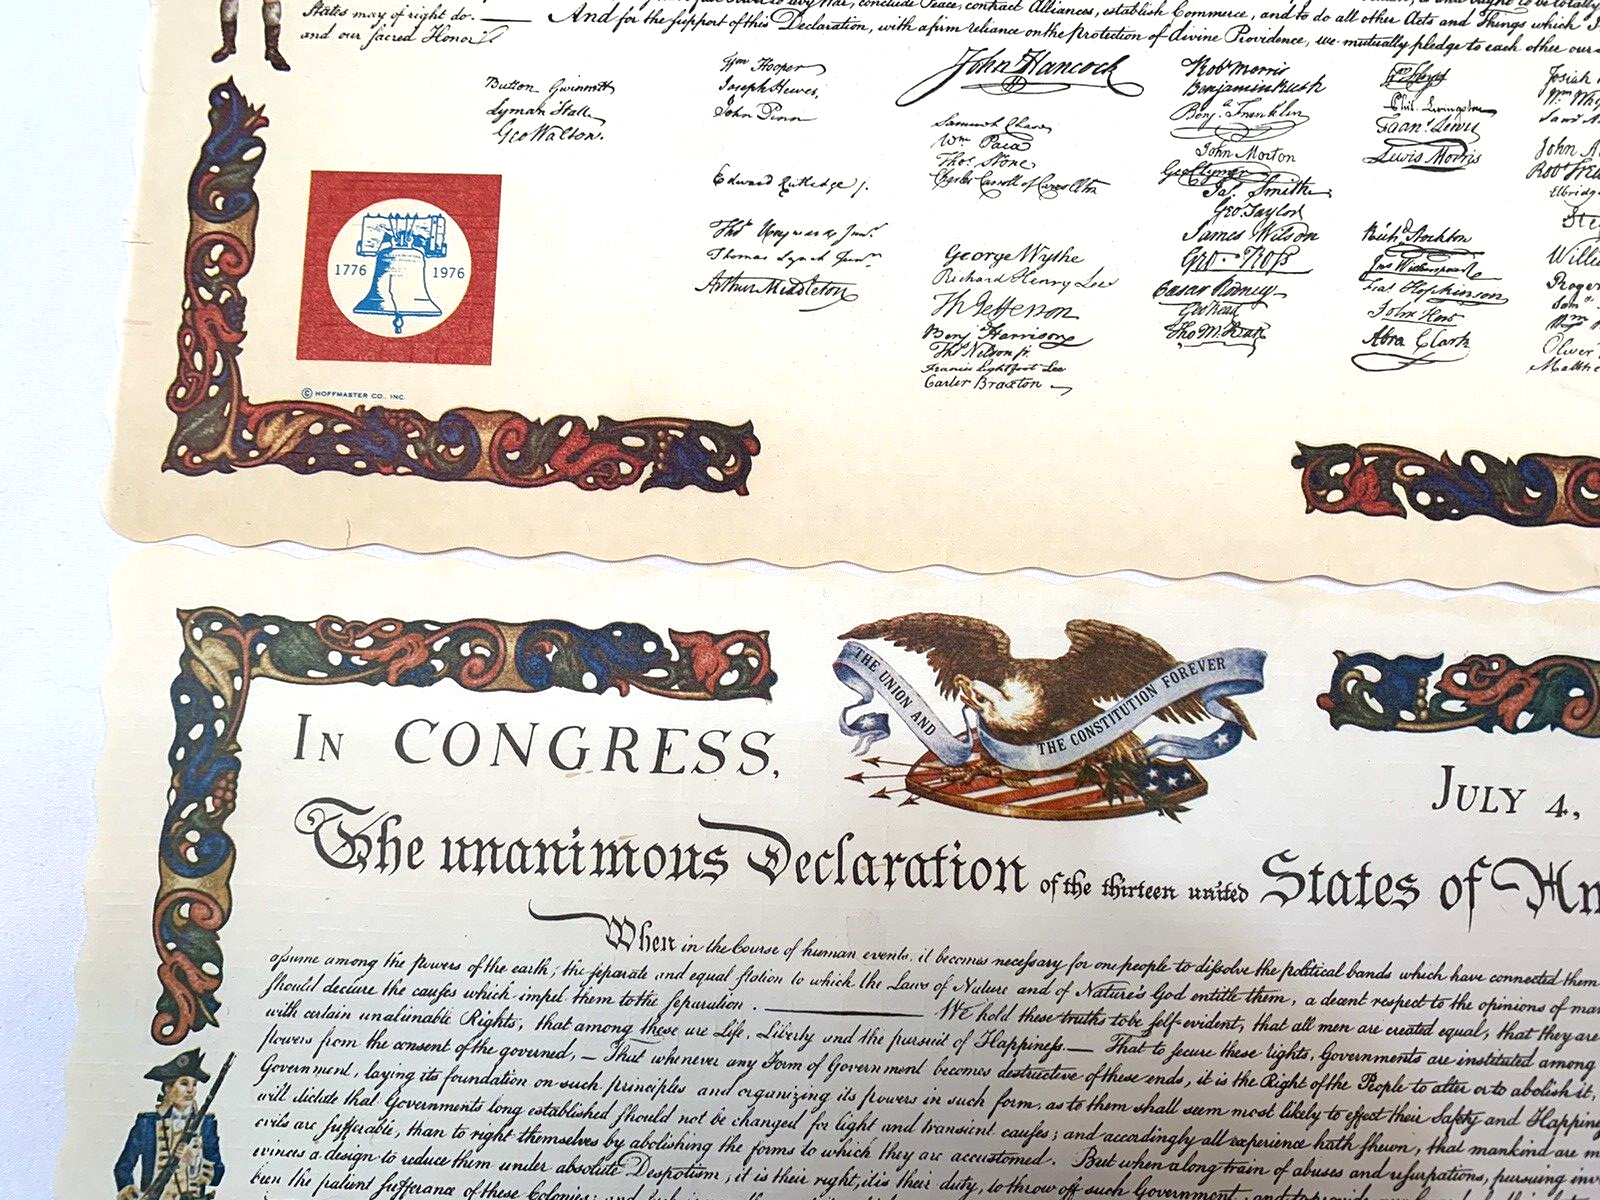 States may of right do. — And for the support of this Declaration, with a firm reliance on the Protection of divine Providence, we mutually pledge to each other our
and our sacred Honor.
Button Gwinnett
Lyman Hall
Geo Walton.
Wm Hooper
Joseph Hewes,
John Penn
Edward Rutledge /.
Thos Heyward Junr.
Thomas Lynch Junr.
Arthur Middleton
John Hancock
Samuel Chase
Wm Paca
Thos Stone
Charles Carroll of Carrollton
George Wythe
Richard Henry Lee
Th Jefferson
Benj Harrison
Thos Nelson jr.
Francis Lightfoot Lee
Carter Braxton
Robt Morris
Benjamin Rush
Benja Franklin
John Morton
Geo Clymer
Jas. Smith
Geo Taylor
James Wilson
Geo. Ross
Caesar Rodney
Geo Read
Tho M:Kean
Wm Floyd
Phil. Livingston
Frans. Lewis
Lewis Morris
Richd Stockton
Jno Witherspoon
Fras Hopkinson
John Hart
Abra Clark
Josiah
Wm Wh
Saml A
John A
Robt Trea
Elbridge
Step
Willi
Roger
Saml
Wm
Oliver
Matthe
1776 1976
© HOFFMASTER CO., INC.
THE UNION AND THE CONSTITUTION FOREVER
IN CONGRESS,
JULY 4,
The unanimous Declaration of the thirteen united States of Am
When in the Course of human events, it becomes necessary for one people to dissolve the political bands which have connected them
assume among the powers of the earth, the separate and equal station to which the Laws of Nature and of Nature's God entitle them, a decent respect to the opinions of man
should declare the causes which impel them to the separation. — We hold these truths to be self-evident, that all men are created equal, that they are
with certain unalienable Rights, that among these are Life, Liberty and the pursuit of Happiness. — That to secure these rights, Governments are instituted among
powers from the consent of the governed, — That whenever any Form of Government becomes destructive of these ends, it is the Right of the People to alter or to abolish it,
Government, laying its foundation on such principles and organizing its powers in such form, as to them shall seem most likely to effect their Safety and Happine
will dictate that Governments long established should not be changed for light and transient causes; and accordingly all experience hath shewn, that mankind are m
evils are sufferable, than to right themselves by abolishing the forms to which they are accustomed. But when a long train of abuses and usurpations, pursuing inv
evinces a design to reduce them under absolute Despotism, it is their right, it is their duty, to throw off such Government, and to provide
been the patient sufferance of these Colonies; and